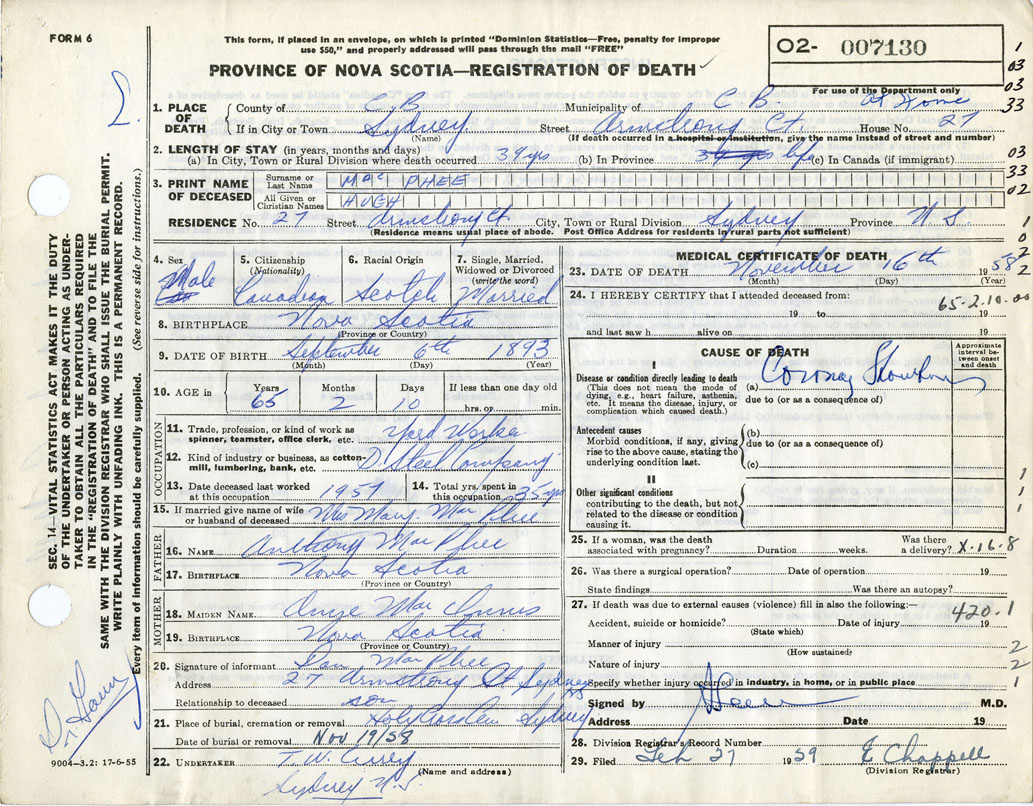 FORM 6
This form, if placed in an envelope, on which is printed "Dominion Statistics—Free, penalty for improper
use $50," and properly addressed will pass through the mail "FREE"
PROVINCE OF NOVA SCOTIA—REGISTRATION OF DEATH
02- 007130
For use of the Department only
1. PLACE OF DEATH
County of C.B. Municipality of C B. at Home
If in City or Town Sydney Street Armstrong Ct. House No. 27
(Name) (If death occurred in a hospital or institution, give the name instead of street and number)
2. LENGTH OF STAY (in years, months and days)
(a) In City, Town or Rural Division where death occurred 39 yrs (b) In Province 39 yrs life (c) In Canada (if immigrant)
3. PRINT NAME OF DECEASED
Surname or Last Name MAC PHEE
All Given or Christian Names HUGH
RESIDENCE No. 27 Street Armstrong Ct. City, Town or Rural Division Sydney Province N S.
(Residence means usual place of abode. Post Office Address for residents in rural parts not sufficient)
4. Sex Male
5. Citizenship (Nationality) Canadian
6. Racial Origin Scotch
7. Single, Married, Widowed or Divorced (write the word) Married
8. BIRTHPLACE Nova Scotia
(Province or Country)
9. DATE OF BIRTH September 6th 1893
(Month) (Day) (Year)
10. AGE in Years 65 Months 2 Days 10 If less than one day old hrs. or min.
OCCUPATION
11. Trade, profession, or kind of work as spinner, teamster, office clerk, etc. Yard Worker
12. Kind of industry or business, as cotton-mill, lumbering, bank, etc. D. Steel Company
13. Date deceased last worked at this occupation 1957
14. Total yrs. spent in this occupation 35 yrs
15. If married give name of wife or husband of deceased Mrs Mary Mac Phee
FATHER
16. NAME Anthony Mac Phee
17. BIRTHPLACE Nova Scotia
(Province or Country)
MOTHER
18. MAIDEN NAME Annie Mac Innis
19. BIRTHPLACE Nova Scotia
(Province or Country)
20. Signature of informant Dan Mac Phee
Address 27 Armstrong Ct Sydney
Relationship to deceased son
21. Place of burial, cremation or removal Sydney
Date of burial or removal Nov 19/58
22. UNDERTAKER T. W. Curry
(Name and address)
Sydney N.S.
9004—3.2: 17-6-55
MEDICAL CERTIFICATE OF DEATH
23. DATE OF DEATH November 16th 1958
(Month) (Day) (Year)
24. I HEREBY CERTIFY that I attended deceased from:
65-2.10.00
19 to 19
and last saw h alive on 19
CAUSE OF DEATH
Approximate interval between onset and death
I
Disease or condition directly leading to death
(This does not mean the mode of dying, e.g., heart failure, asthenia, etc. It means the disease, injury, or complication which caused death.)
(a) Coronary
due to (or as a consequence of)
Antecedent causes
Morbid conditions, if any, giving rise to the above cause, stating the underlying condition last.
(b)
due to (or as a consequence of)
(c)
II
Other significant conditions
contributing to the death, but not related to the disease or condition causing it.
25. If a woman, was the death associated with pregnancy? Duration weeks. Was there a delivery? X-16-8
26. Was there a surgical operation? Date of operation 19
State findings Was there an autopsy?
27. If death was due to external causes (violence) fill in also the following:—
420.1
Accident, suicide or homicide? Date of injury 19
(State which)
Manner of injury
(How sustained)
Nature of injury
Specify whether injury occurred in industry, in home, or in public place
Signed by M.D.
Address Date 19
28. Division Registrar's Record Number
29. Filed Feb 27 1959 E Chappell
(Division Registrar)
SEC. 14—VITAL STATISTICS ACT MAKES IT THE DUTY
OF THE UNDERTAKER OR PERSON ACTING AS UNDER-
TAKER TO OBTAIN ALL THE PARTICULARS REQUIRED
IN THE "REGISTRATION OF DEATH" AND TO FILE THE
SAME WITH THE DIVISION REGISTRAR WHO SHALL ISSUE THE BURIAL PERMIT.
WRITE PLAINLY WITH UNFADING INK. THIS IS A PERMANENT RECORD.
Every item of information should be carefully supplied. (See reverse side for instructions.)
1
03
03
33
03
33
02
1
0
2
2
1
1
1
2
2
1